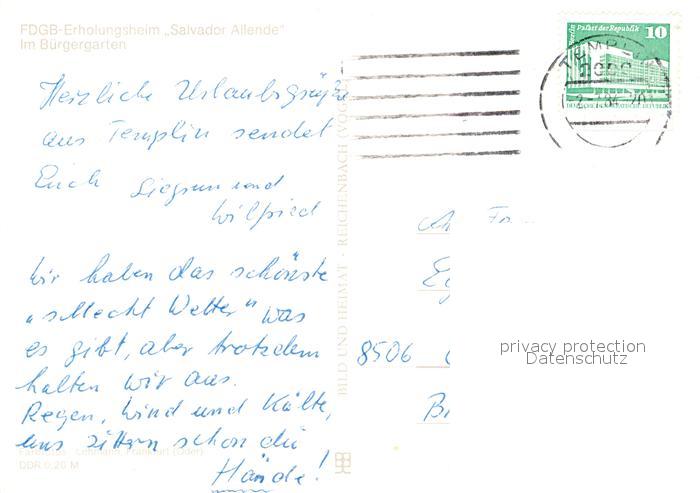 FDGB-Erholungsheim „Salvador Allende"
Im Bürgergarten
Herzliche Urlaubsgrüße
aus Templin sendet
Euch Siegrun und
Wilfried
Wir haben das schönste
„schlecht Wetter" was
es gibt, aber trotzdem
halten wir aus.
Regen, Wind und Kälte,
uns zittern schon die
Hände!
Lehmann, Frankfurt (Oder)
DDR 0,20 M
BILD UND HEIMAT · REICHENBACH (VOG
Berlin Palast der Republik 10
TEMPLIN
2090
8506
privacy protection
Datenschutz